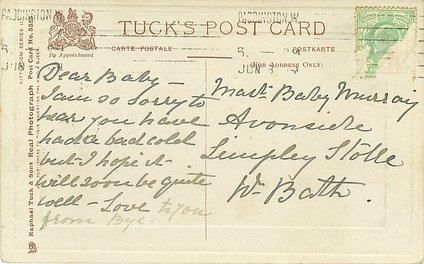 PADDINGTON. W.
PADDINGTON. W.
JUN 3 9
TUCK'S POST CARD
By Appointment
CARTE POSTALE
POSTKARTE
(FOR ADDRESS ONLY)
Raphael Tuck & Sons Real Photograph Post Card
Dear Baby -
I am so sorry to
hear you have
had a bad cold
but I hope it
will soon be quite
well - Love to you
from Bye.
Mast. Baby Murray
Avonside
Limpley Stoke
Nr Bath.